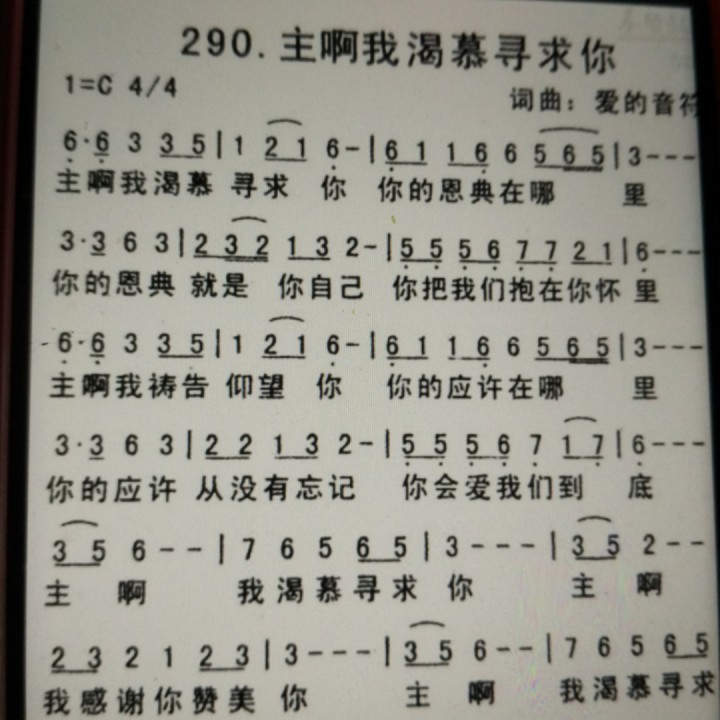 290.主啊我渴慕寻求你
1=C 4/4
词曲：爱的音符
6·6 3 3 5|1 2 1 6-|6 1 1 6 6 5 6 5|3---
主啊我渴慕 寻求 你 你的恩典在哪 里
3·3 6 3|2 3 2 1 3 2-|5 5 5 6 7 7 2 1|6---
你的恩典 就是 你自己 你把我们抱在你怀 里
6·6 3 3 5|1 2 1 6-|6 1 1 6 6 5 6 5|3---
主啊我祷告 仰望 你 你的应许在哪 里
3·3 6 3|2 2 1 3 2-|5 5 5 6 7 1 7|6---
你的应许 从没有忘记 你会爱我们到 底
3 5 6--|7 6 5 6 5|3---|3 5 2--
主 啊 我渴慕寻求 你 主 啊
2 3 2 1 2 3|3---|3 5 6--|7 6 5 6 5
我感谢你赞美 你 主 啊 我渴慕寻求